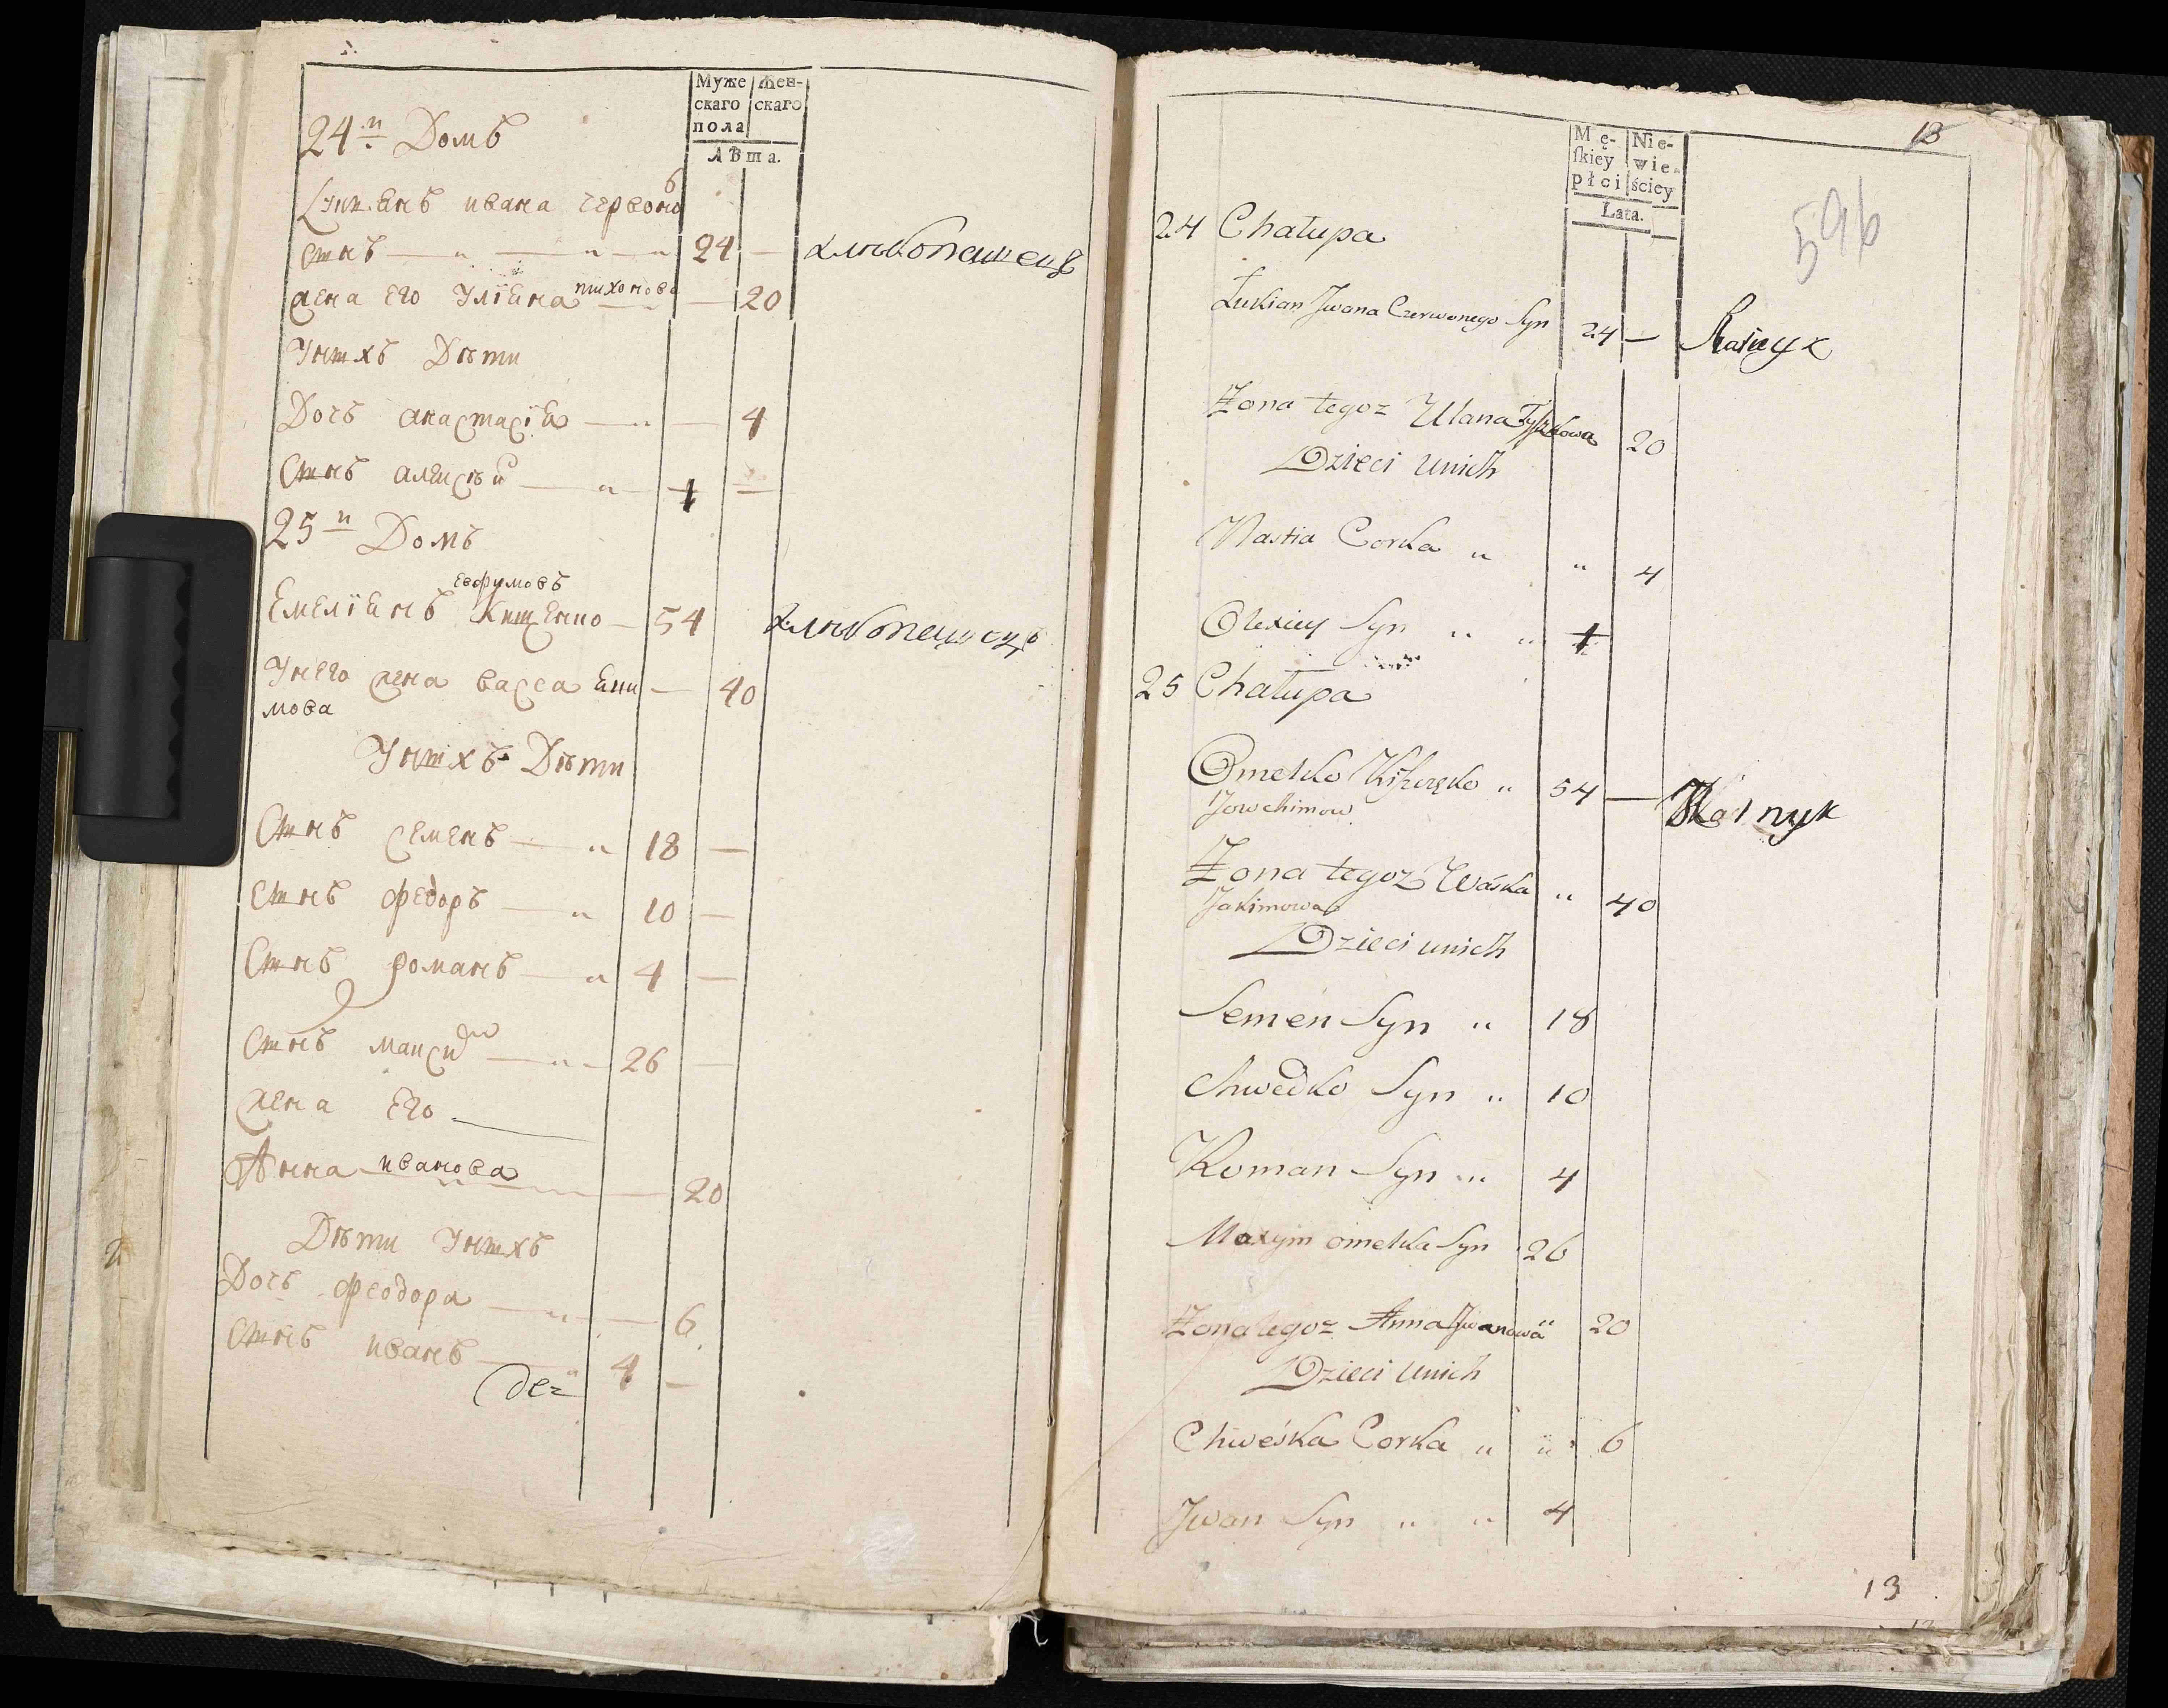 Муже
скаго
пола
Жен-
скаго
Лѣта.
24й Домъ
Лукіянъ ивана червоно
сынъ 24 — хлѣбопашецъ
жена его Уліяна тихонова — 20
Унихъ Дѣти
Дочь анастасія — 4
Сынъ алексѣй — 1 —
25й Домъ
евфимовъ
Емеліянъ Кищенко — 54 хлѣбопашецъ
Унего жена васса яки — 40
мова
Унихъ Дѣти
Сынъ семенъ — 18 —
сынъ федоръ — 10 —
Сынъ романъ — 4 —
Сынъ максим — 26 —
жена его
Анна иванова — 20
Дѣти Унихъ
Дочь феодора — 6
сынъ иванъ 4 —
13
596
Mę-
ſkiey
płci
Nie-
wie-
ściey
Lata.
24 Chałupa
Łukian Jwana Czerwonego Syn 24 — Rolnyk
Żona tegoż Ulana Tyszkowa 20
Dzieci unich
Nastia Corka " " 4
Olexiey Syn " " 1
25 Chałupa
Omelko Kiszczęko " 54 — Rolnyk
Jowchimow
Żona tegoż Waska " 40
Jakimowa
Dzieci unich
Semen Syn " 18
Chwedko Syn " 10
Roman Syn " 4
Maxym omelka Syn 26
Żona tegoż Anna Jwanowa 20
Dzieci unich
Chweśka Corka " " 6
Jwan Syn " " 4
13